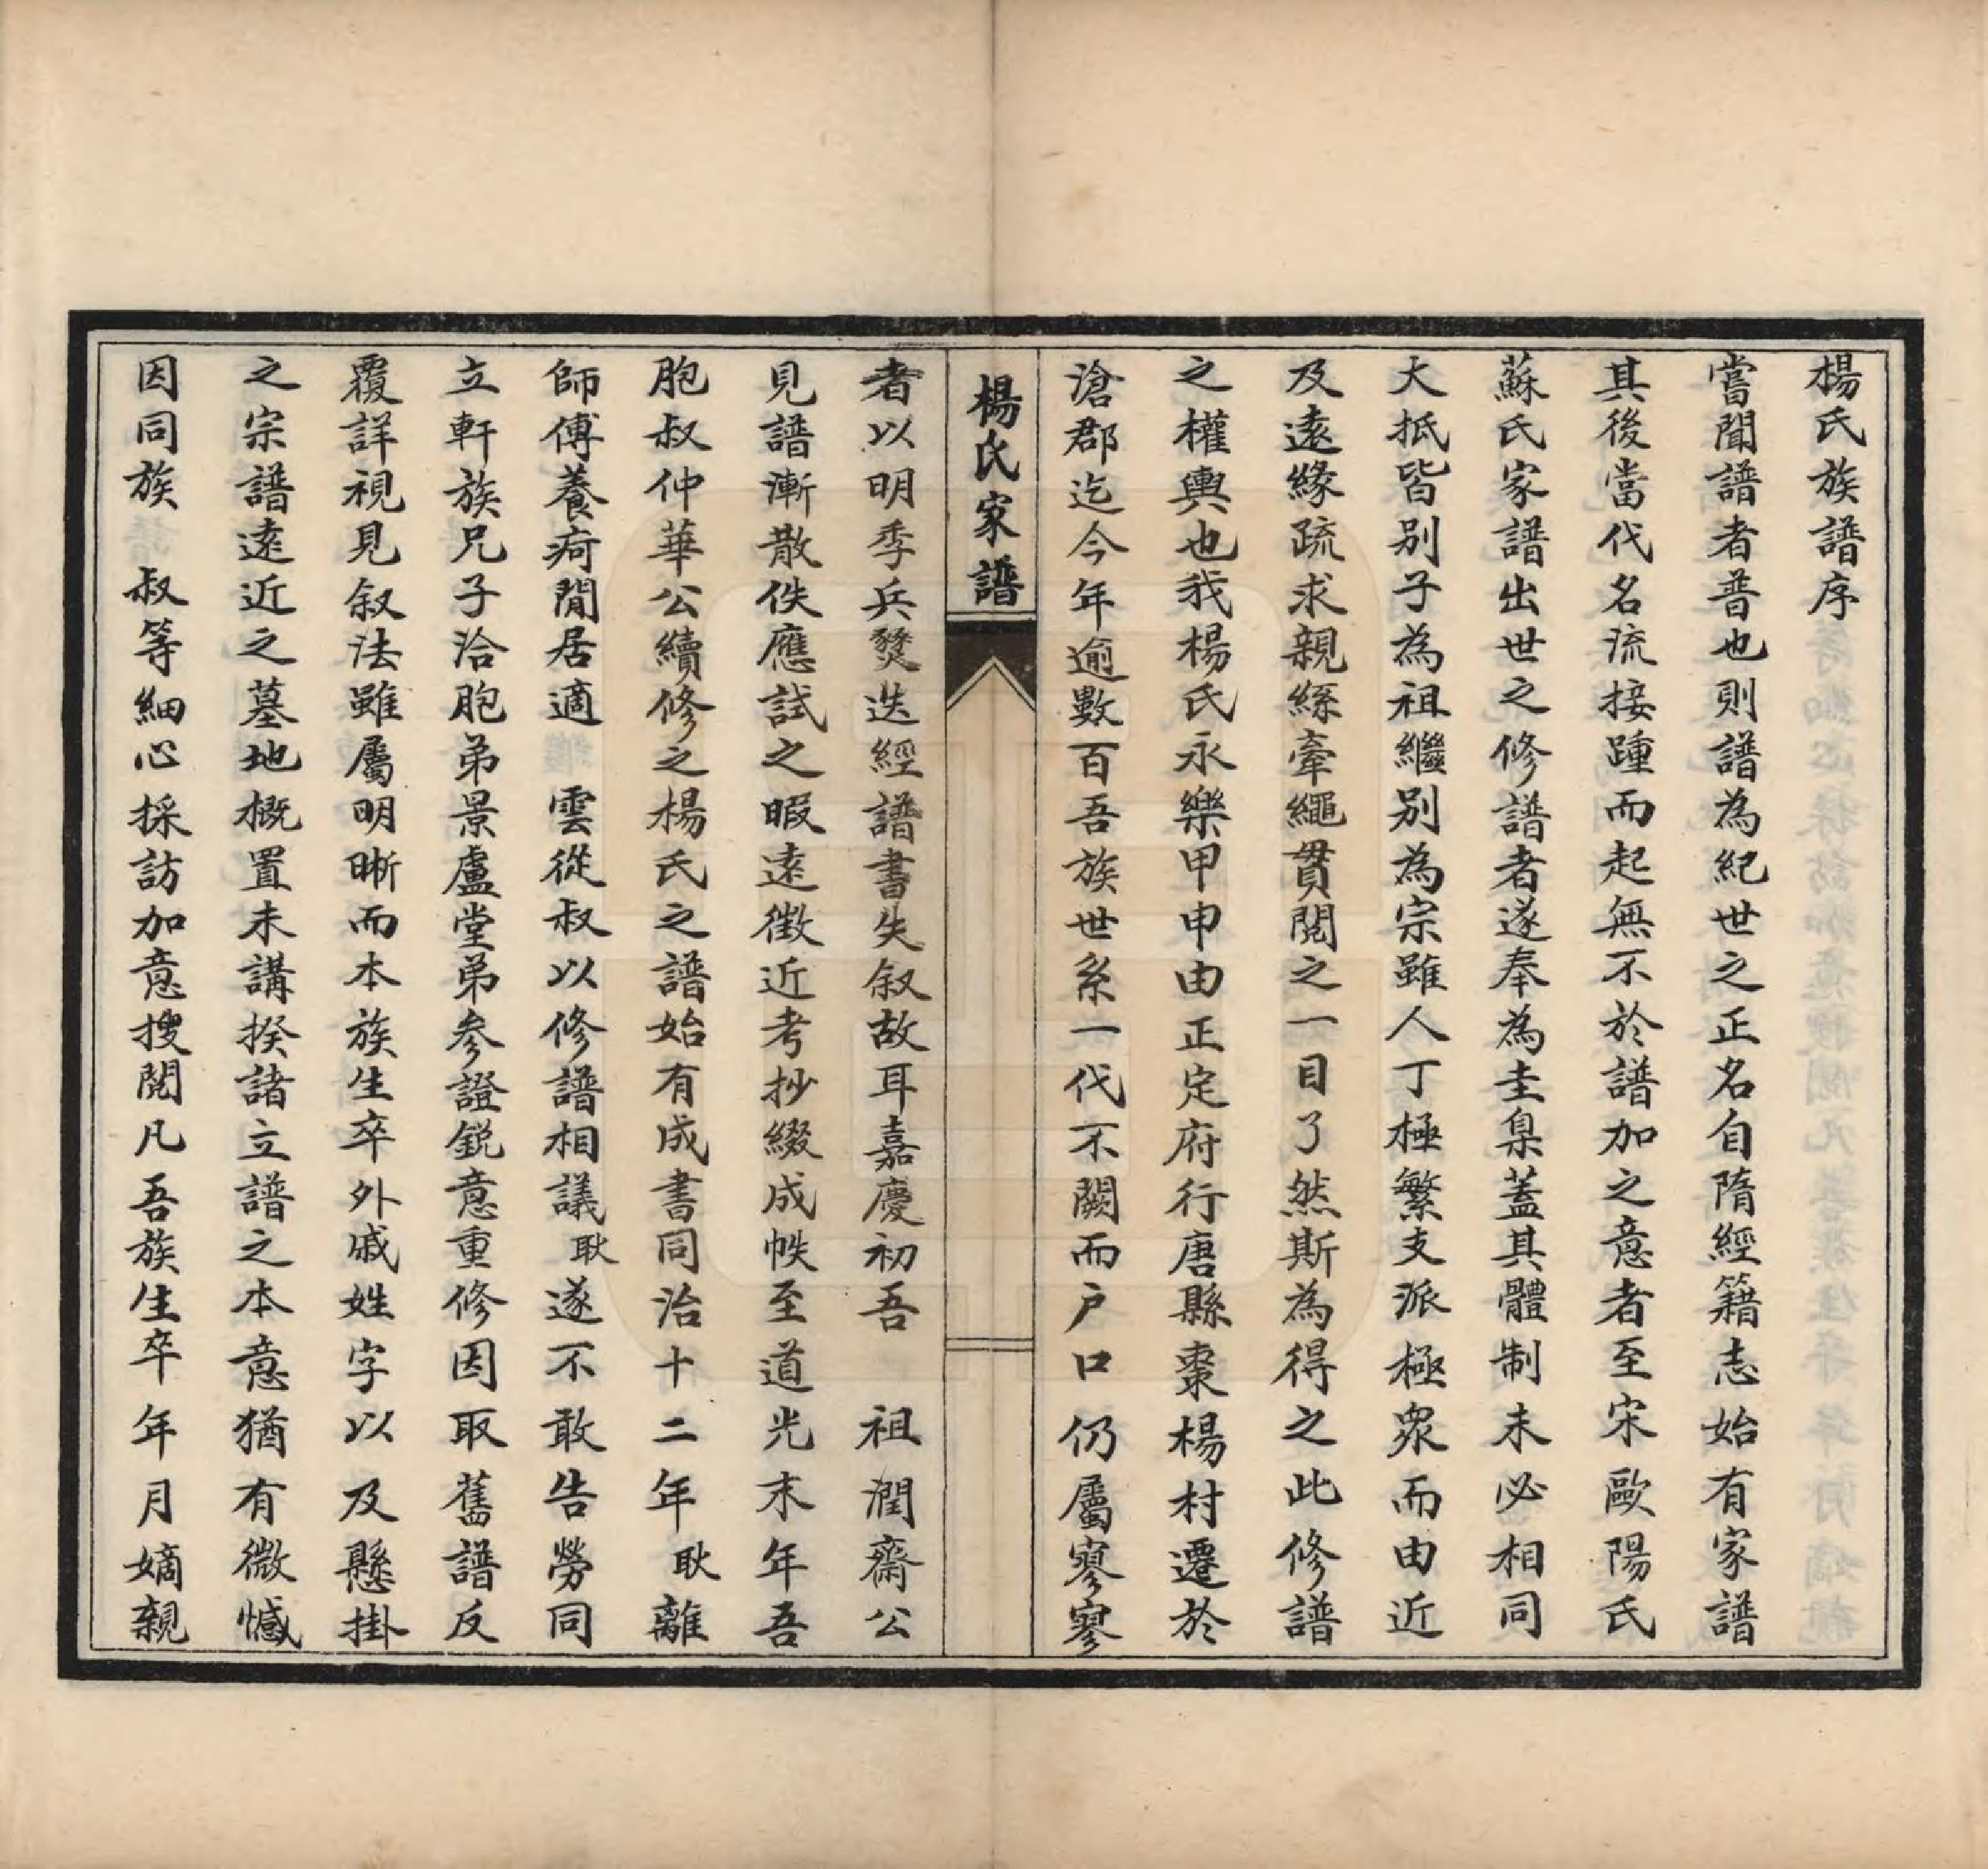 楊氏族譜序
嘗聞譜者普也則譜為紀世之正名自隋經籍志始有家譜
其後當代名流接踵而起無不於譜加之意者至宋歐陽氏
蘇氏家譜出世之修譜者遂奉為圭臬蓋其體制未必相同
大抵皆別子為祖繼別為宗雖人丁極繁支派極眾而由近
及遠緣疏求親絲牽繩貫閱之一目了然斯為得之此修譜
之權輿也我楊氏永樂甲申由正定府行唐縣棗楊村遷於
滄郡迄今年逾數百吾族世系一代不闕而户口仍屬寥寥
楊氏家譜
者以明季兵燹迭經譜書失叙故耳嘉慶初吾 祖潤齋公
見譜漸散佚應試之暇遠徵近考抄綴成帙至道光末年吾
胞叔仲華公續修之楊氏之譜始有成書同治十二年耿離
師傅養疴閒居適 雲從叔以修譜相議耿遂不敢告勞同
立軒族兄子洽胞弟景盧堂弟參證銳意重修因取舊譜反
覆詳視見叙法雖屬明晰而本族生卒外戚姓字以及懸掛
之宗譜遠近之墓地概置未講揆諸立譜之本意猶有微憾
因同族 叔等細心採訪加意搜閱凡吾族生卒年月嫡親